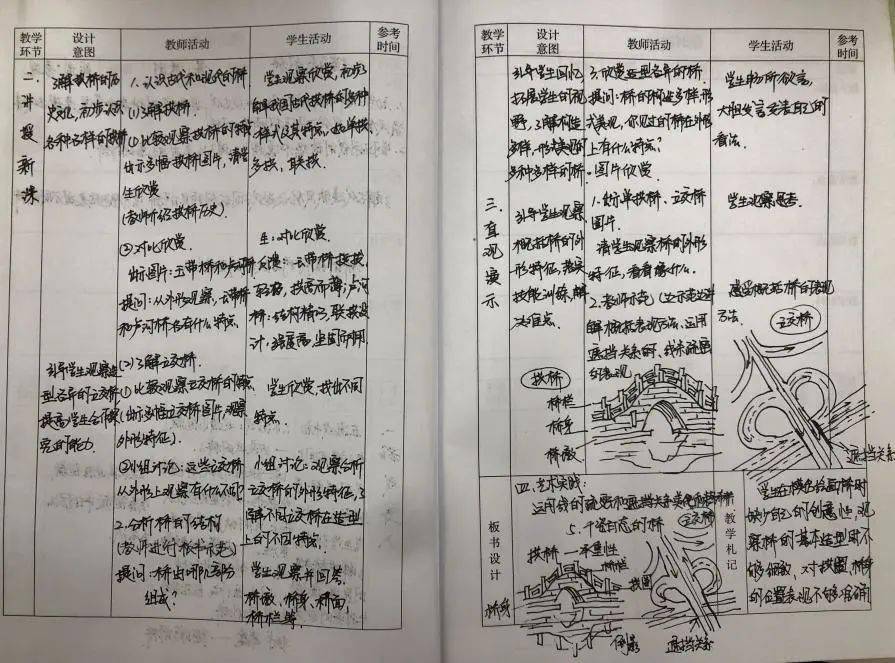 教学环节 设计意图 教师活动 学生活动 参考时间
二.讲授新课
了解拱桥的历
史文化,初步认识
各种各样的拱桥
1.认识古代和现代的桥
(1)了解拱桥.
①比较观察拱桥的特点
出示多幅拱桥图片,请学
生欣赏
(教师介绍拱桥历史).
②对比欣赏.
出示图片:玉带桥和卢沟桥
提问:从外形观察,玉带桥
和卢沟桥各有什么特点.
引导学生观察造
型各异的立交桥
提高学生合作探
究的能力.
(2)了解立交桥.
①比较观察立交桥的特点
(出示多幅立交桥图片,观察
外形特征).
②小组讨论:这些立交桥
从外形上观察有什么不同?
2.分析桥的结构
(教师进行板书示范)
提问:桥由哪几部分
组成?
学生观察欣赏,初步了
解我国古代拱桥的多种
样式及其特点,如单拱,
多拱,联拱.
生:对比欣赏.
反馈:玉带桥
拱高而薄;卢沟
桥:结构精巧,联拱设
计:强度高,坚固耐用
学生欣赏,找出不同
特点.
小组讨论:观察分析
立交桥的外形特征,了
解不同立交桥在造型
上的不同特点.
学生观察并回答.
桥墩、桥身、桥面,
桥栏等.
教学环节 设计意图 教师活动 学生活动 参考时间
引导学生回忆
拓展学生的视
野,了解构造
多样,形式美观的
多种多样的桥.
3.欣赏造型各异的桥.
提问:桥的构造多样,形
式美观,你见过的桥在外形
上有什么特点?
图片欣赏
学生畅所欲言,
大胆发言交流自己的
看法.
三.直观演示
引导学生观察
概括桥的外
形特征,落实
技能训练,解
决难点.
1.分析单拱桥、立交桥
图片.
请学生观察桥的外形
特征,看看像什么.
2.教师示范(边示范边讲
解概括表现方法、运用
遮挡关系的、线条疏密
的表现
学生观察思考.
感受概括桥的表现
方法.
拱桥
桥栏
桥身
桥墩
立交桥
遮挡关系
板书设计
四.艺术实践:
运用线的疏密和遮挡关系美化
5.千姿百态的桥
拱桥—承重性
立交桥
桥栏
拱圈
桥身
倒影
遮挡关系
教学札记
学生在模仿绘画桥时
缺少自己的创意性,观
察桥的基本造型时不
够细致,对拱圈,桥身
的位置表现不够准确